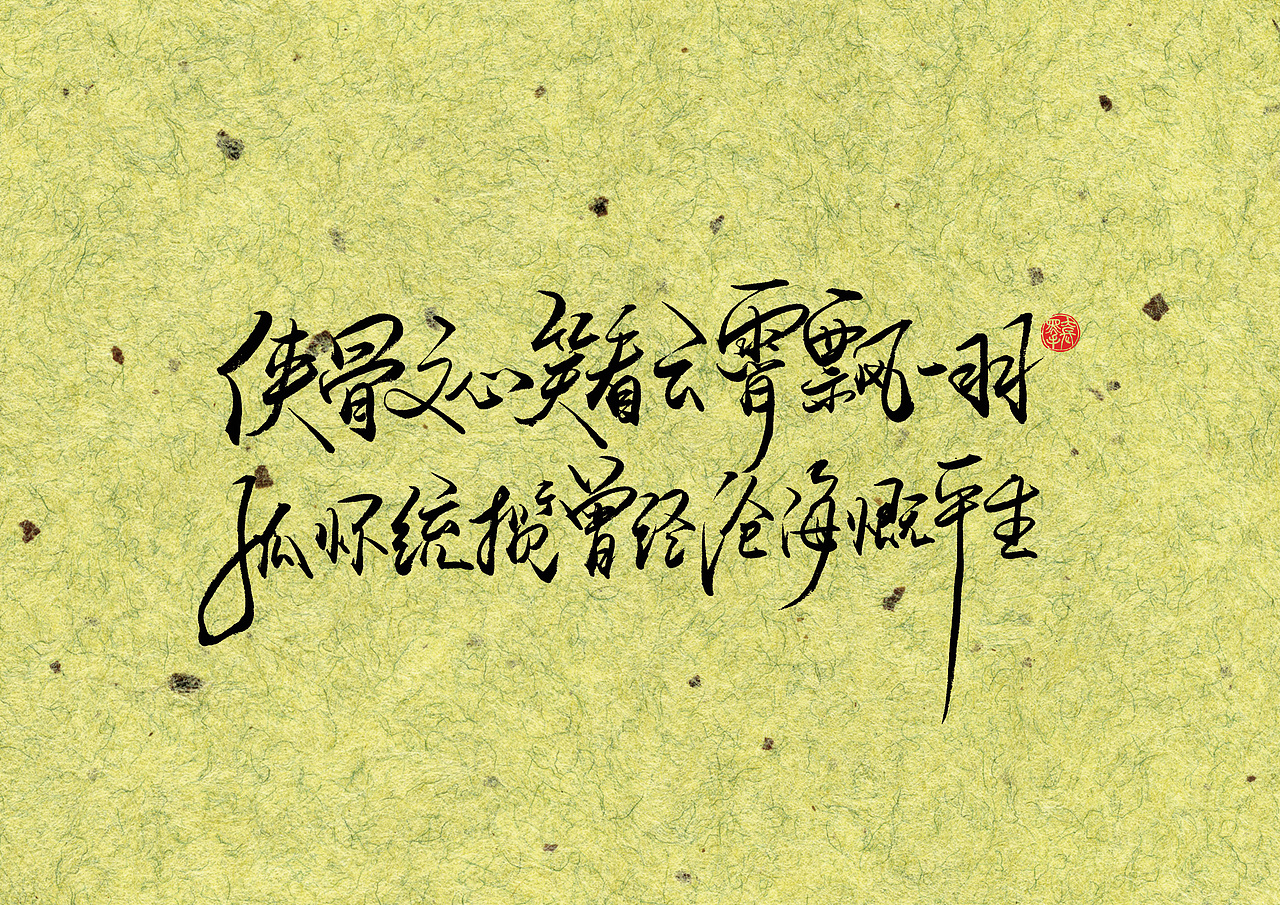 侠骨文心笑看云霄飘一羽
孤怀统揽曾经沧海慨平生